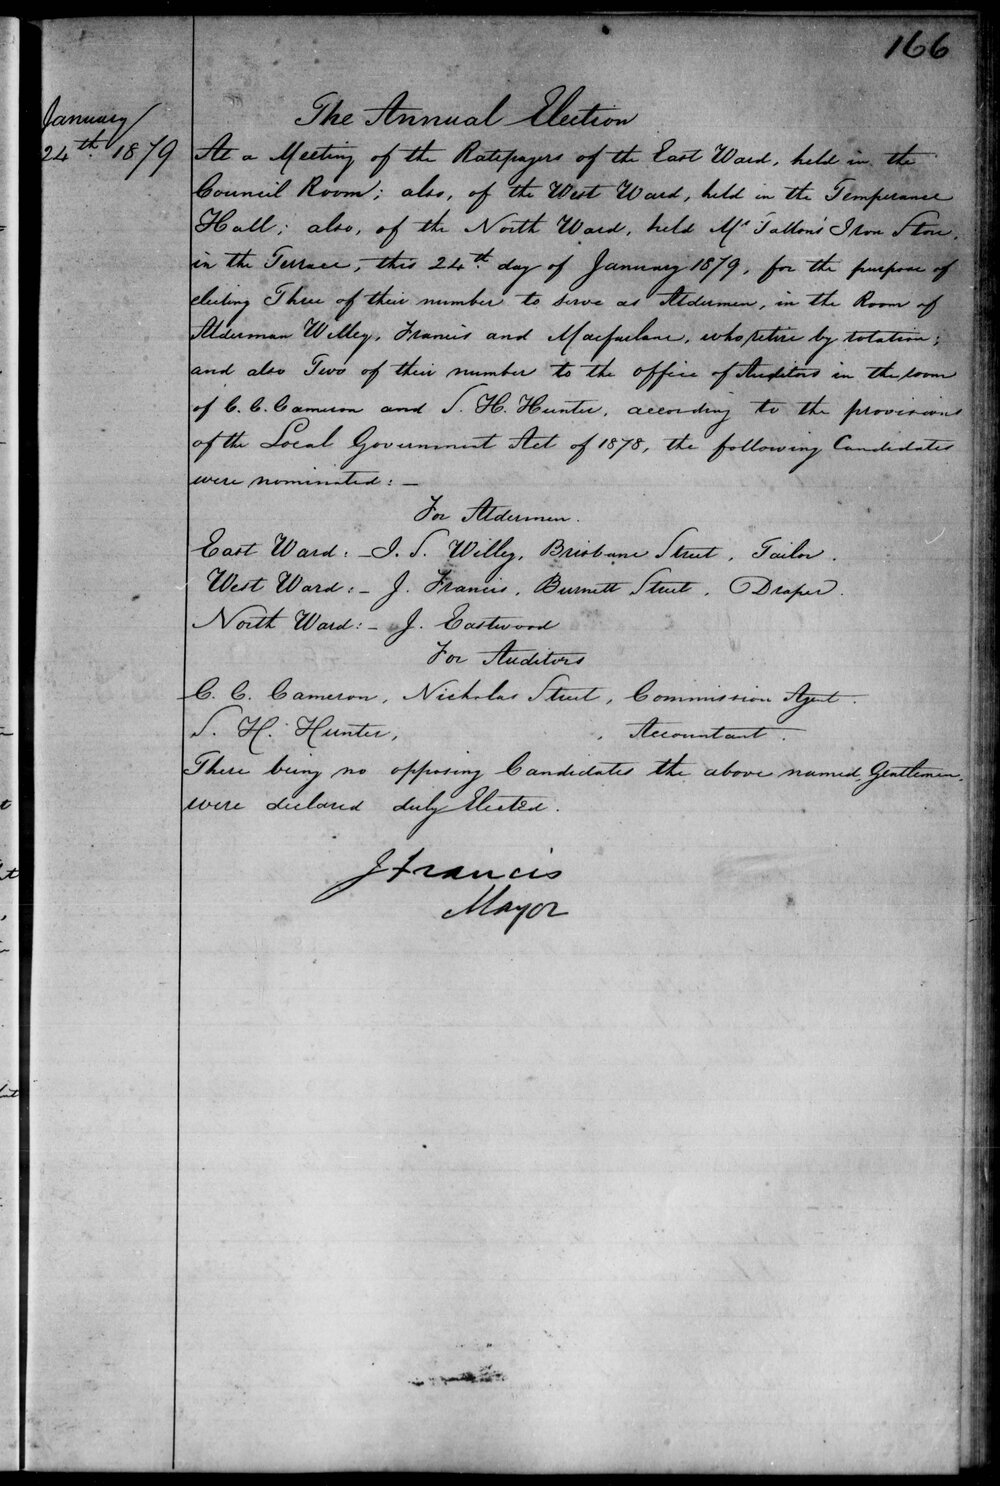 166
January
24th 1879
The Annual Election
At a Meeting of the Ratepayers of the East Ward, held in the
Council Room; also, of the West Ward, held in the Temperance
Hall; also, of the North Ward, held Mr Tallon's Iron Store,
in the Terrace, this 24th day of January 1879, for the purpose of
electing Three of their number to serve as Aldermen, in the Room of
Alderman Willey, Francis and Macfarlane, who retire by rotation;
and also Two of their number to the office of Auditors in the room
of C. C. Cameron and S. H. Hunter, according to the provisions
of the Local Government Act of 1878, the following Candidates
were nominated: —
For Aldermen.
East Ward: – I. S. Willey, Brisbane Street, Tailor.
West Ward: – J. Francis, Burnett Street, Draper.
North Ward: – J. Eastwood
For Auditors
C. C. Cameron, Nicholas Street, Commission Agent.
S. H. Hunter, , Accountant.
There being no opposing Candidates the above named Gentlemen,
were declared duly Elected.
J Francis
Mayor